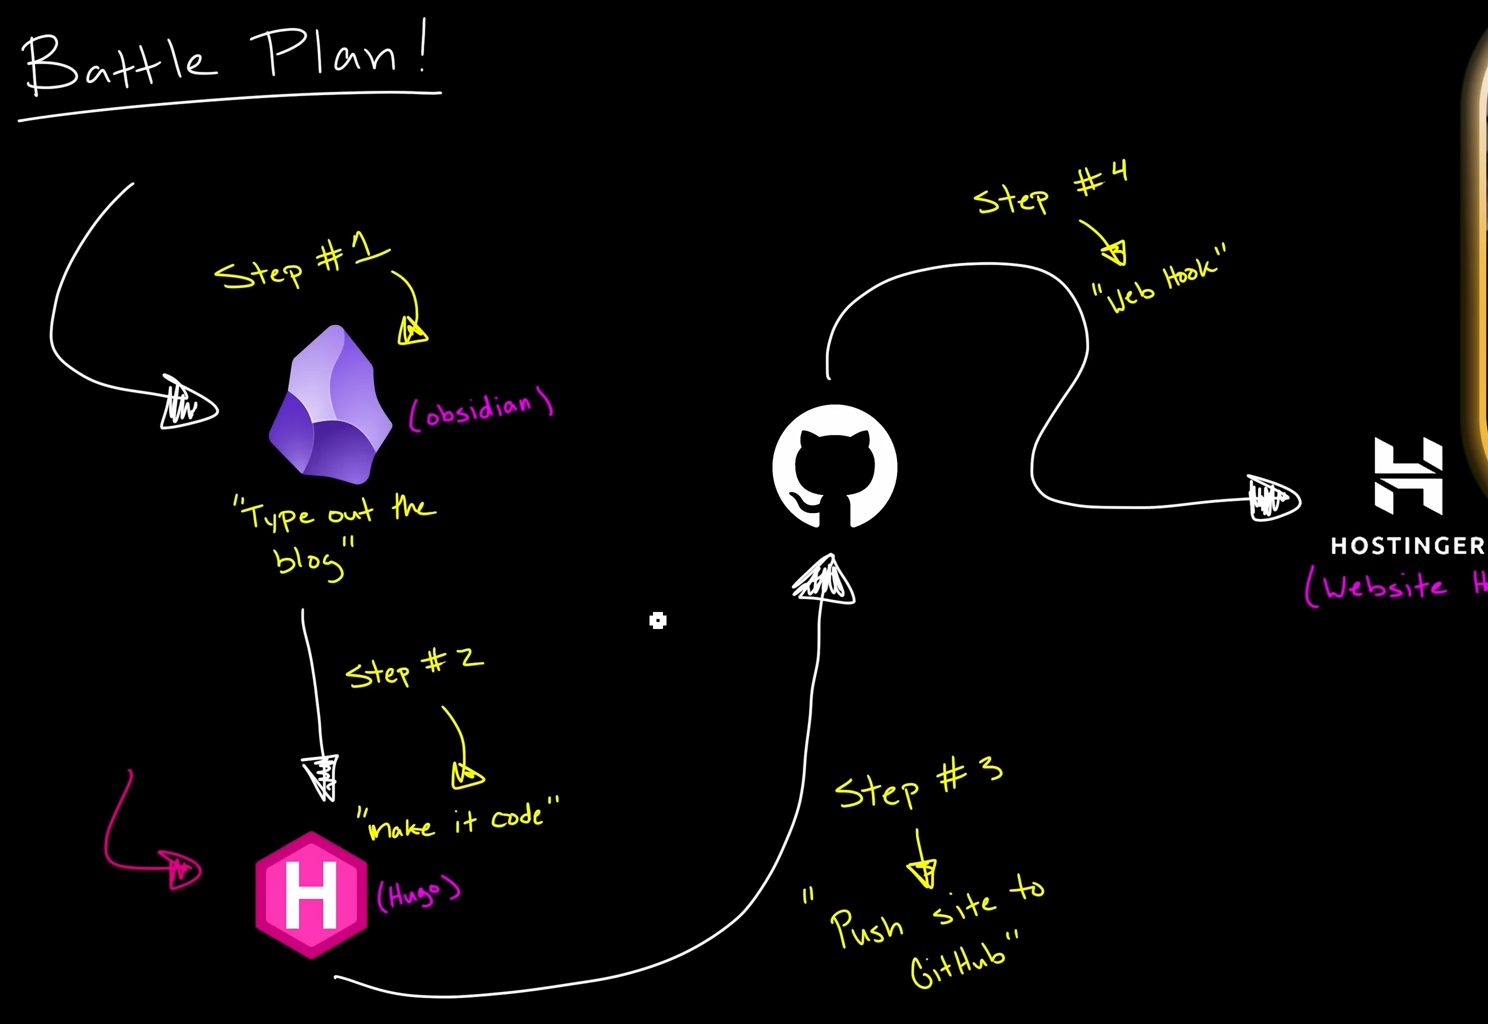 Battle Plan!
Step #1
(obsidian)
"Type out the
blog"
Step #2
"make it code"
H
(Hugo)
Step #3
"Push site to
GitHub"
Step #4
"Web Hook"
HOSTINGER
(Website H